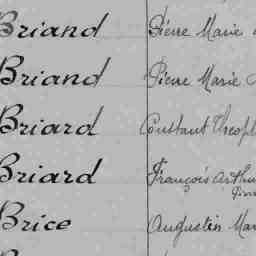 Briand Pierre Marie
Briand Pierre Marie
Briard Constant Théoph
Briard François Arthu
Brice Augustin Mar